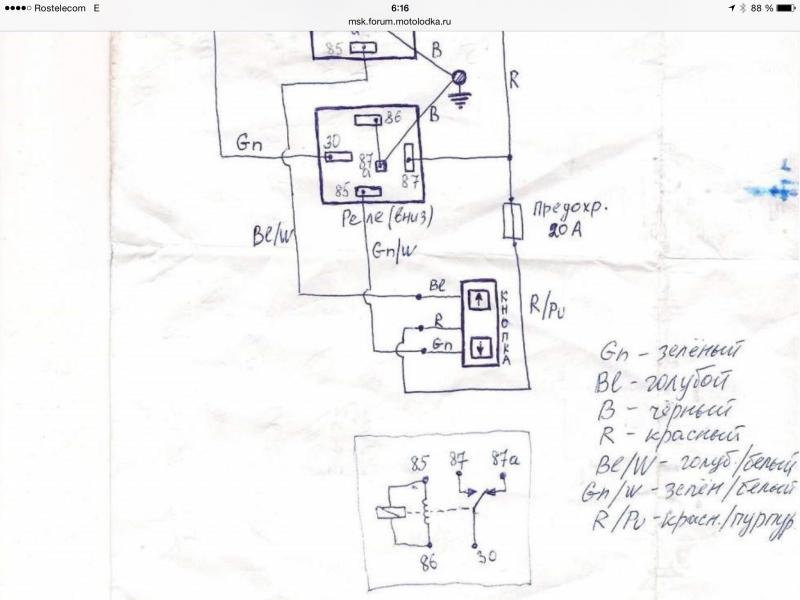 Rostelecom E
6:16
88 %
msk.forum.motolodka.ru
85
B
R
B
86
Gn
30
87
a
87
85
Реле (вниз)
Предохр.
20A
Bl/W
Gn/W
Bl
R
Gn
КНОПКА
R/Pu
Gn - зелёный
Bl - голубой
B - чёрный
R - красный
Bl/W - голуб./белый
Gn/W - зелен/белый
R/Pu - красн./пурпур
85
87
87a
86
30